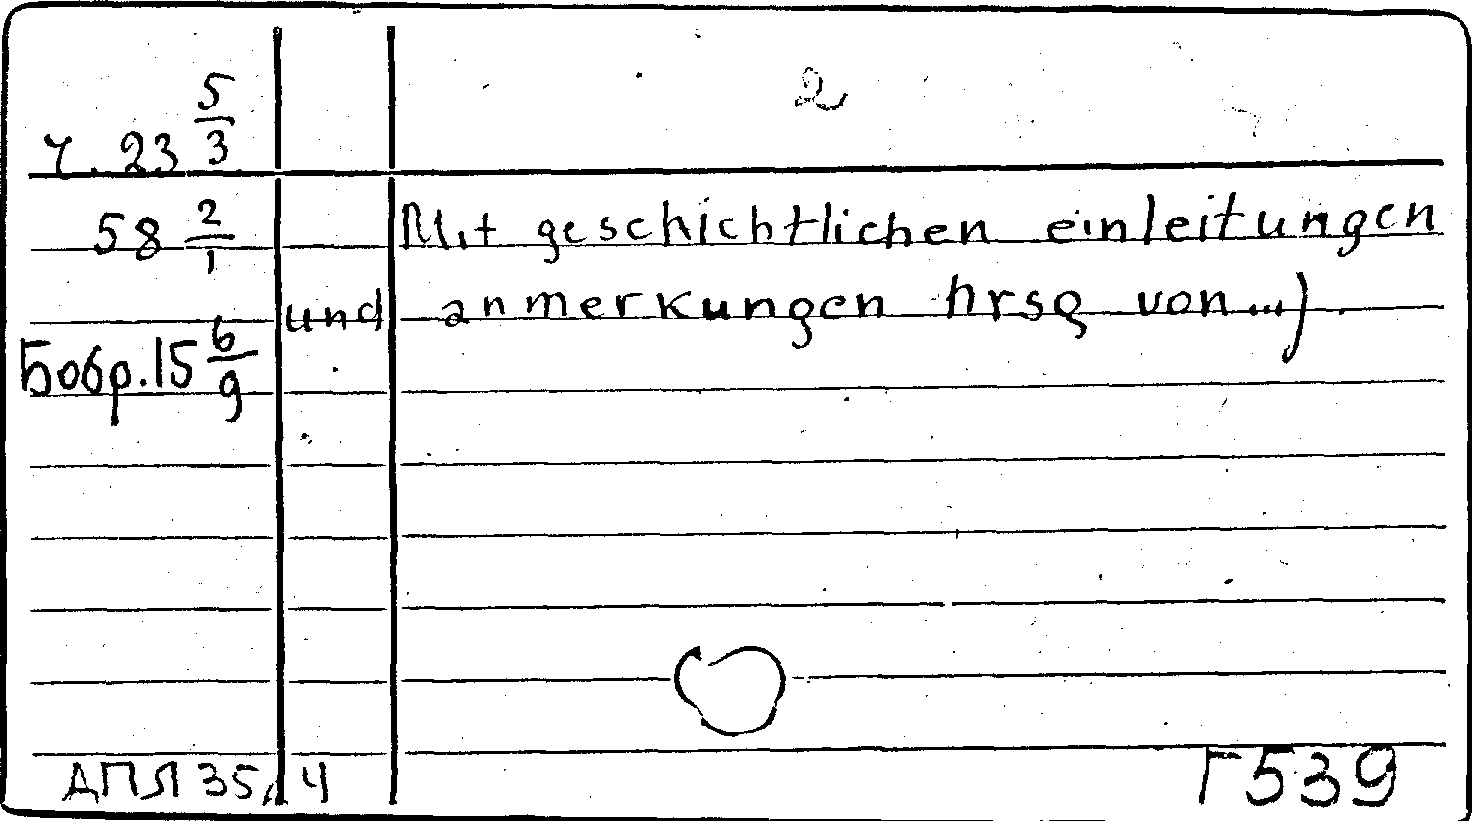 2
Ч. 23 5/3
58 2/1
Mit geschichtlichen einleitungen
und anmerkungen hrsg von...)
Бобр. 15 6/9
ДПЛ 35, 4
Г539